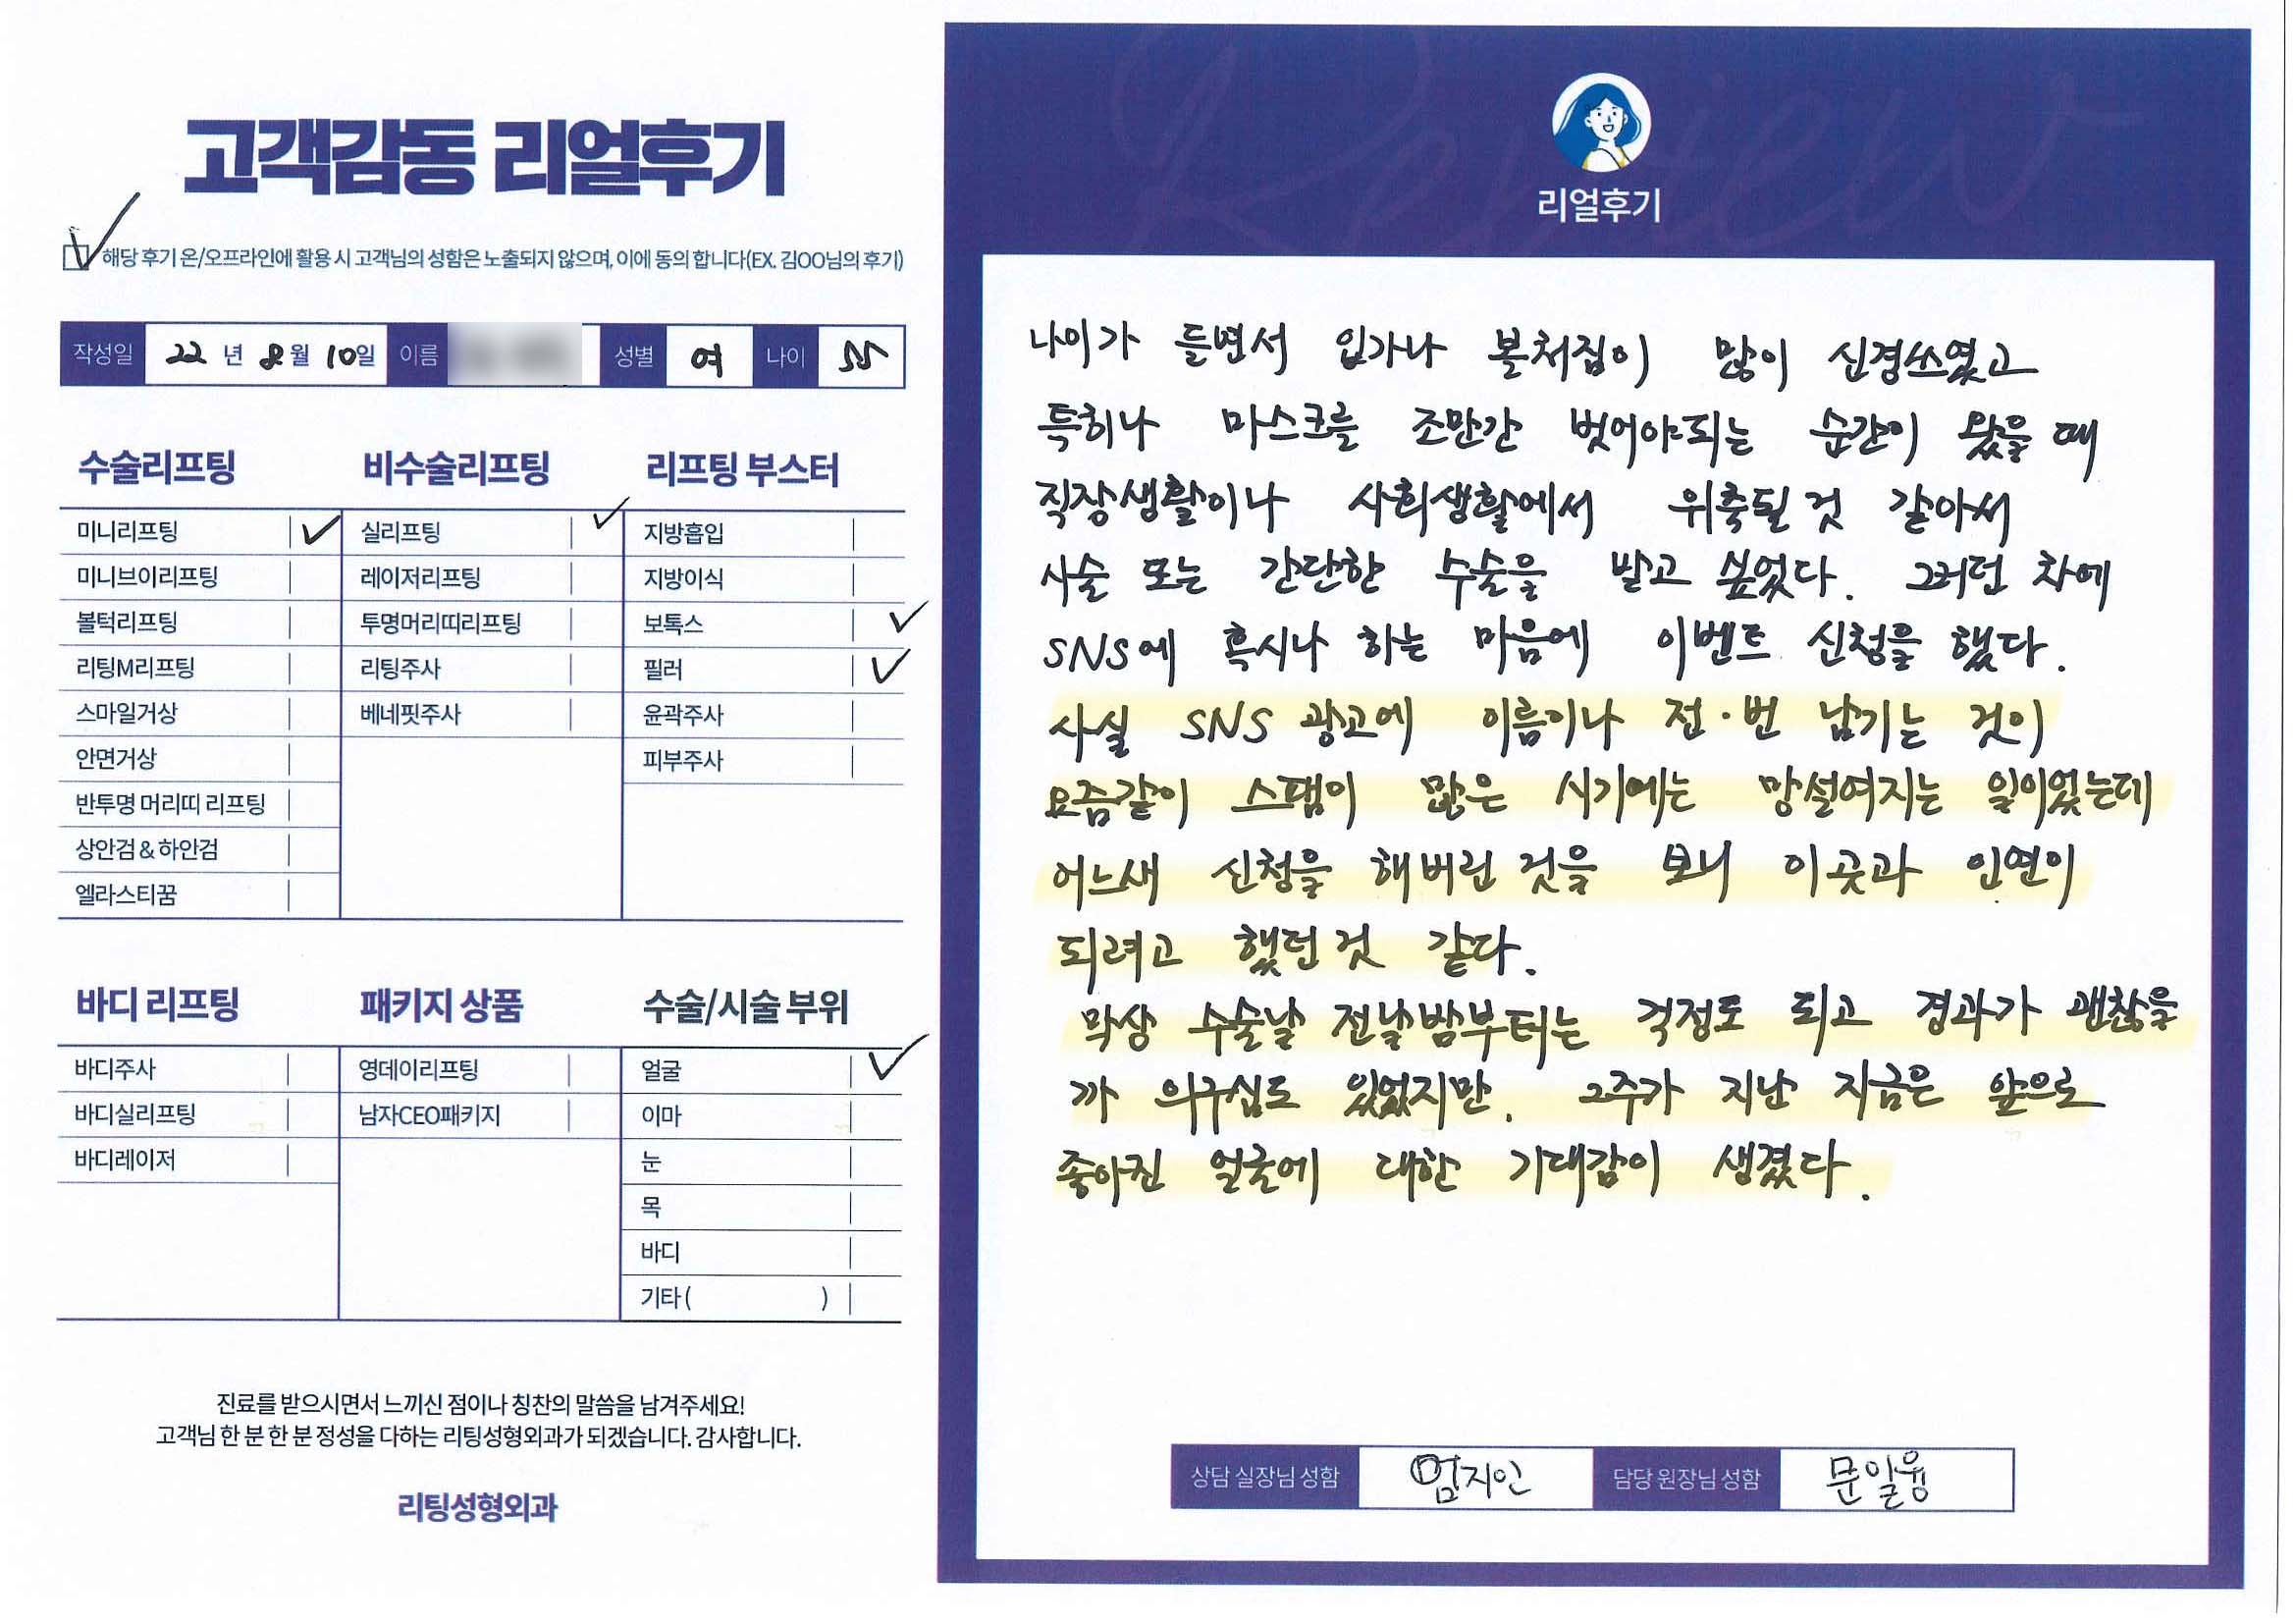 고객감동 리얼후기
해당 후기 온/오프라인에 활용 시 고객님의 성함은 노출되지 않으며, 이에 동의 합니다(EX. 김OO님의 후기)
작성일 22 년 8월 10일 이름 성별 여 나이 55
수술리프팅
미니리프팅
미니브이리프팅
볼턱리프팅
리팅M리프팅
스마일거상
안면거상
반투명 머리띠 리프팅
상안검 & 하안검
엘라스티꿈
비수술리프팅
실리프팅
레이저리프팅
투명머리띠리프팅
리팅주사
베네핏주사
리프팅 부스터
지방흡입
지방이식
보톡스
필러
윤곽주사
피부주사
바디 리프팅
바디주사
바디실리프팅
바디레이저
패키지 상품
영데이리프팅
남자CEO패키지
수술/시술 부위
얼굴
이마
눈
목
바디
기타 ( )
진료를 받으시면서 느끼신 점이나 칭찬의 말씀을 남겨주세요!
고객님 한 분 한 분 정성을 다하는 리팅성형외과가 되겠습니다. 감사합니다.
리팅성형외과
Review
리얼후기
나이가 들면서 입가나 볼처짐이 많이 신경쓰였고
특히나 마스크를 조만간 벗어야되는 순간이 왔을 때
직장생활이나 사회생활에서 위축될 것 같아서
시술 또는 간단한 수술을 받고 싶었다. 그러던 차에
SNS에 혹시나 하는 마음에 이벤트 신청을 했다.
사실 SNS 광고에 이름이나 전·번 남기는 것이
요즘같이 스팸이 많은 시기에는 망설여지는 일이었는데
어느새 신청을 해버린 것을 보니 이곳과 인연이
되려고 했던 것 같다.
막상 수술날 전날밤부터는 걱정도 되고 경과가 괜찮을
까 의구심도 있었지만. 2주가 지난 지금은 앞으로
좋아진 얼굴에 대한 기대감이 생겼다.
상담 실장님 성함 엄지인 담당 원장님 성함 문일웅